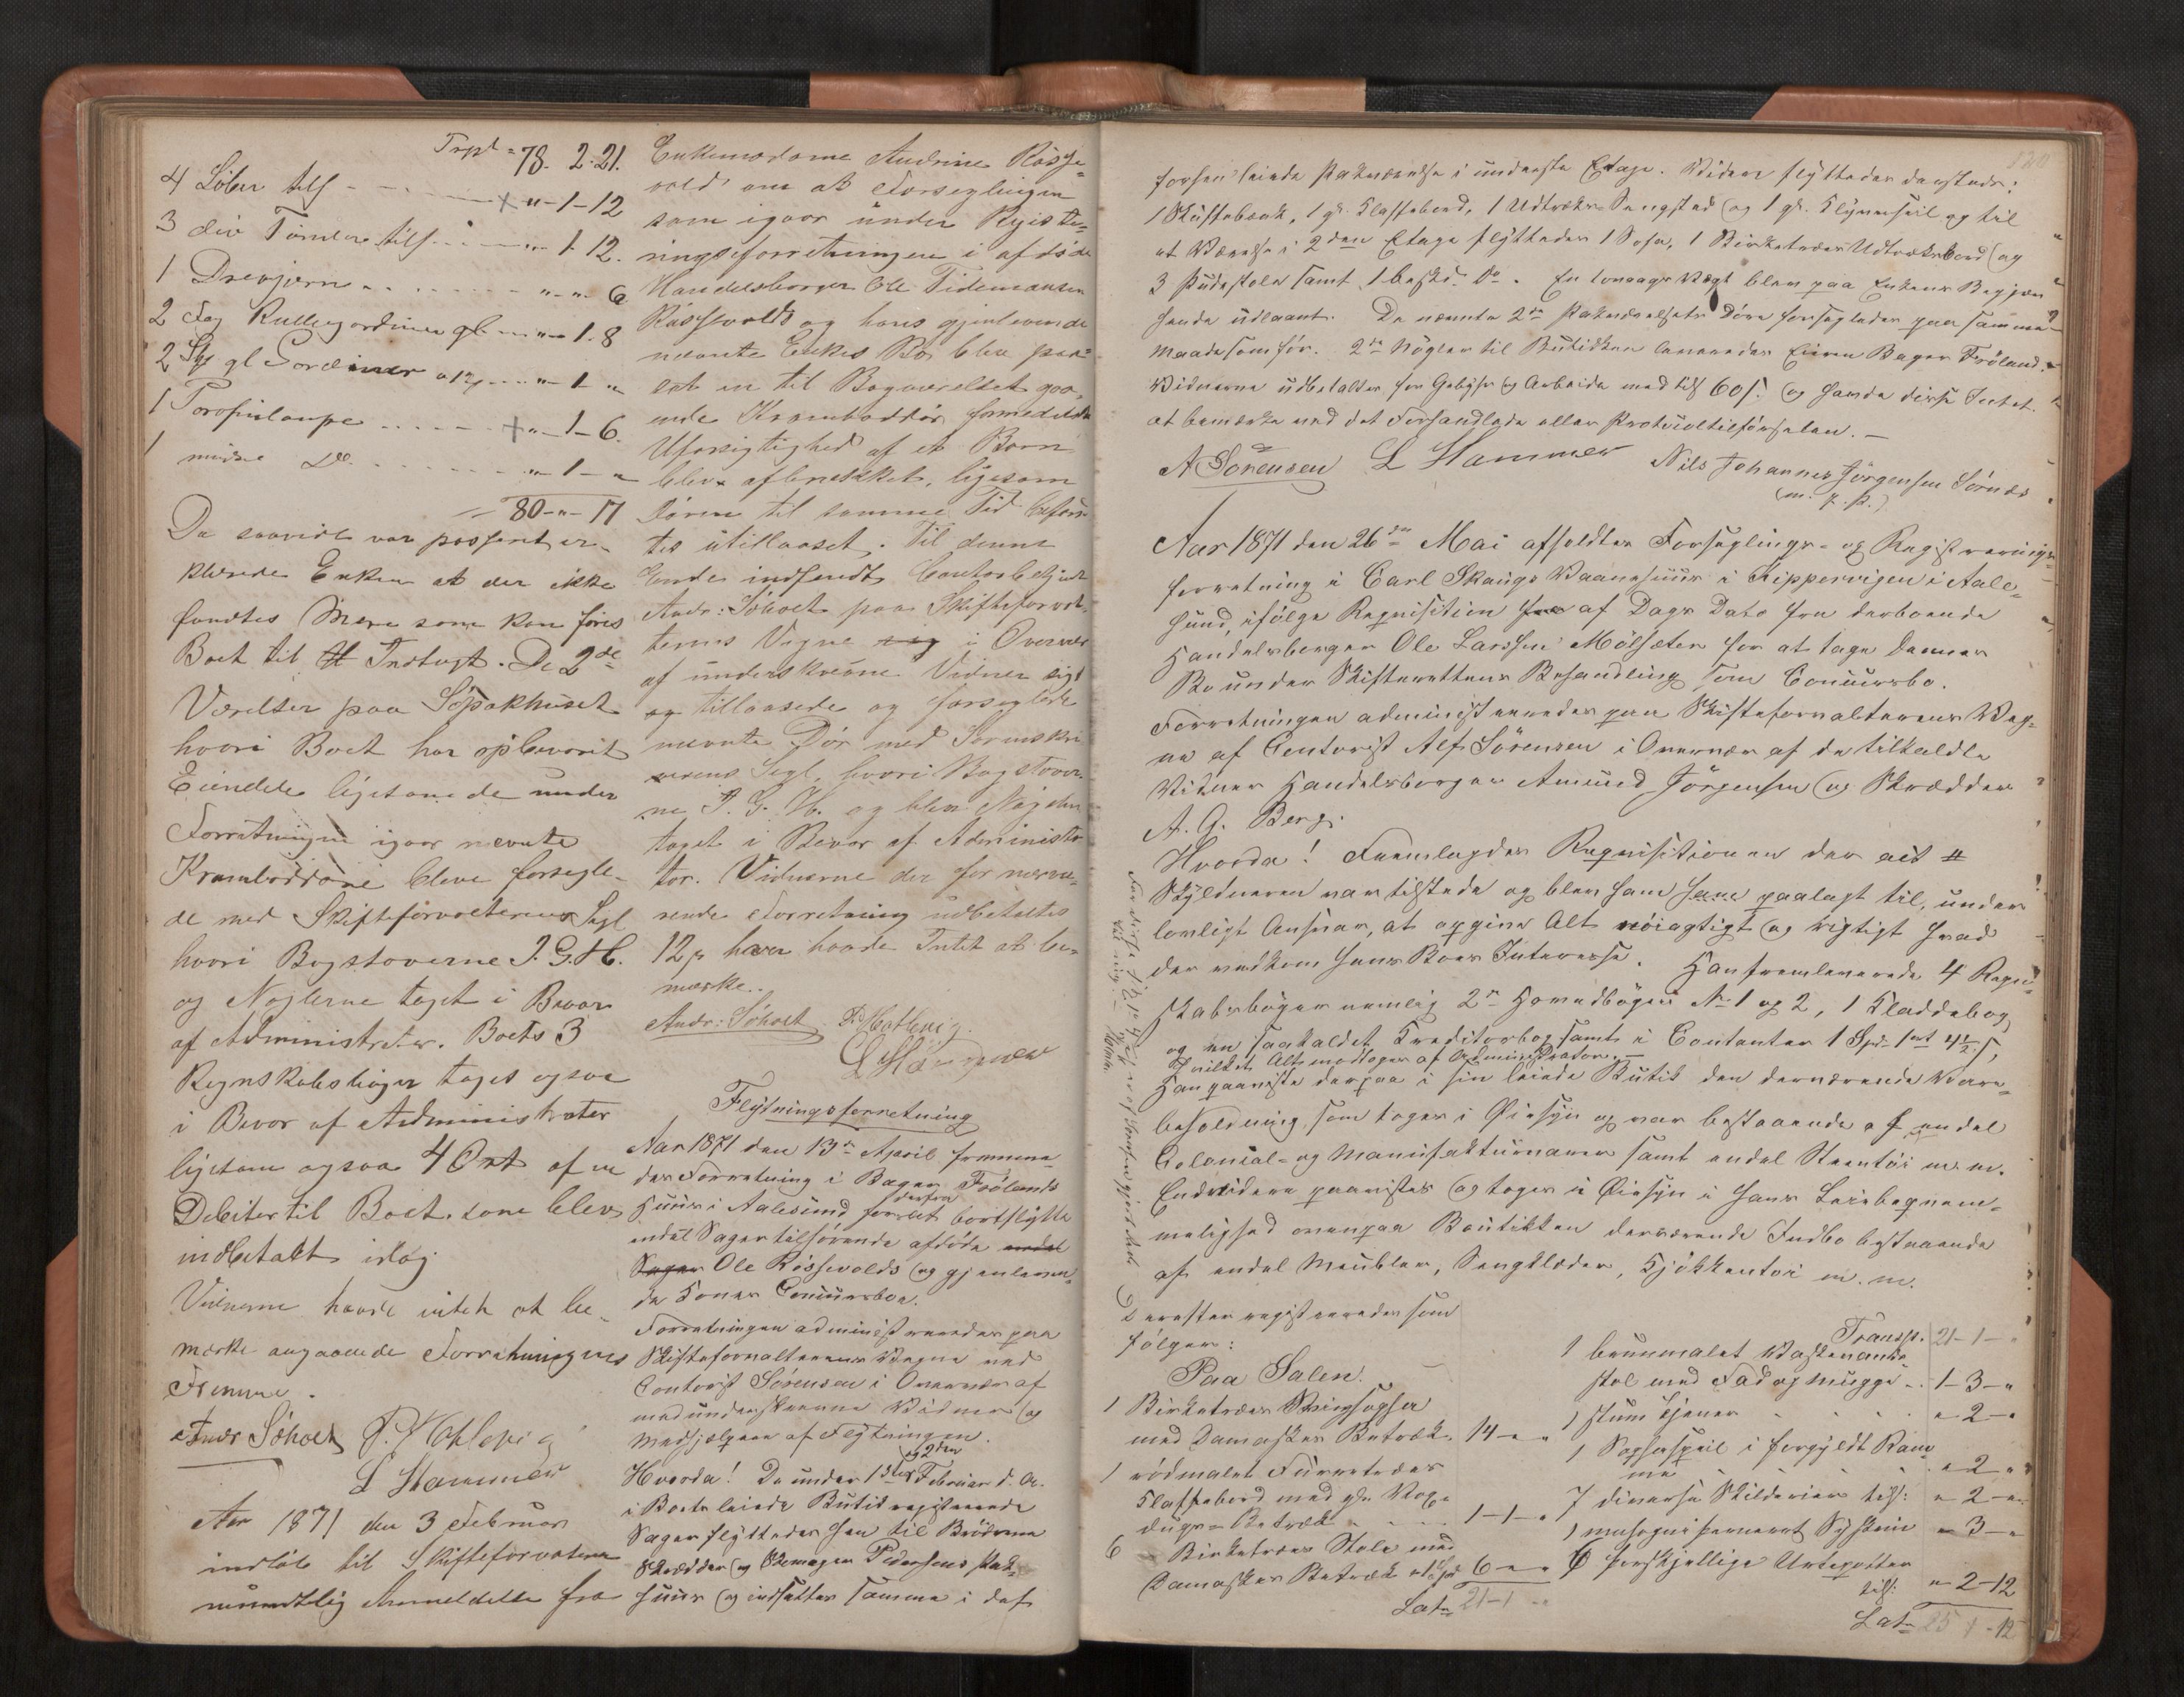 Trspt = 78. 2. 21.
4 Löbere tils - - - - + " - 1 - 12
3 div Tönder tils - - - " - 1 - 12.
1 Drevjern - - - - " - " - 6
2 Fag Rullegardiner gl - - " - 1. 8
2 Stk gl Gardiner a 12 - - " - 1 - "
1 - - - - + " - 1 - 6.
1 mindre Do. - - - - " - 1 - "
= 80 - " - 17
Da saavidt var passeret er-
klærede Enken at der ikke
fandtes Mere som kan føres
Boet til Indtægt. De 2de
Værelser paa Söpakhuset
hvori Boet har opbevaret
Eiendele ligesom de under
Forretningen igaar nævnte
Kramboddöre bleve forsegle-
de med Skifteforvalterens Segl
hvori Bogstaverne P. G. H.
og Nøglerne taget i Bevar
af Administrator. Boets 3
Regnskabsbøger toges ogsaa
i Bevar af Administrator
ligesom ogsaa 4 Ort af en
Debitor til Boet som blev
indbetalt idag.
Vidnerne havde intet at be-
mærke angaaende Forretningens
Fremme.
Andr Söholt
L Hammer
Aar 1871 den 3 Februar
indløb til Skifteforvalteren
mundtlig Anmeldelse fra
Enkemadame Andrine Røsse-
vold om at Forseglingen
som igaar under Registe-
ringsforretningen i afdöde
Handelsborger Ole Tidemansen
Røssevolds og hans gjenlevende
nævnte Enkes Bo blev paa-
sat en til Bagværelset gaa-
ende Kramboddör formedelst
Uforsigtighed af et Barn
blev afbrækket, ligesom
Døren til samme Tid befand-
tes utillaaset. Til denne
Ende indfandt Contorbetjent
Andr: Söholt paa Skifteforval-
terens Vegne sig i Overvær
af underskrevne Vidner sig
og tillaasede og forseglede
nævnte Dör med Sorenskri-
verens Segl, hvori Bogstaver-
ne P. G. H. og blev Nøglen
taget i Bevar af Administra-
tor. Vidnerne der for nærvæ-
rende Forretning udbetaltes
12 s hver havde Intet at be-
mærke.
Andr: Söholt
L Hammer
Flytningsforretning
Aar 1871 den 13de April fremme-
des Forretning i Bager Frölands
Huus i Aalesund for derfra at bortflytte
endel Sager tilhørende afdöde endel
Sager Ole Røssevolds og gjenleven-
de Kones Concursbo.
Forretningen administreredes paa
Skifteforvalterens Vegne ved
Contorist Sörensen i Overvær af
medunderskrevne Vidner og
Medhjælpere af Flytningen.
Hvorda! De under 1ste og 2den Februar d. A.
i Boets leiede Butik registrerede
Sager flyttedes hen til Brödrene
Skrædder og Skomager Pedersens Pak-
huus og indsattes samme i det
120
forhen leiede Pakværelse i underste Etage. Videre flyttedes dersteds:
1 Skuffebænk, 1 gl. Klaffebord, 1 Udtræks-Sengsted og 1 gl. Klyversseil og til
et Værelse i 2den Etage flyttedes 1 Sofa, 1 Birketræes Udtræksbord og
3 Pudestole samt 1 besk. Do. En Vægt blev paa Enkens Begjæ-
rende udlaant. De nævnte 2de Pakværelsets Döre forsegledes paa samme
Maade som för. 2de Nögler til Butikken leveredes Eieren Bager Fröland.
Vidnerne udbetaltes for Gebyhr og Arbeide med tils 60 s. og havde disse Intet
at bemærke ved det Forhandlede eller Protocoltilførselen. -
A Sörensen L Hammer Nils Johannes Jörgensen Sörnes
(m. p. P.)
Aar 1871 den 26de Mai afholdtes Forseglings- og Registrerings-
forretning i Carl Skaugs Vaaningshuus i Kippervigen i Aale-
sund, ifølge Requisition fra af Dags Dato fra derboende
Handelsborger Ole Larssen Mölsæter for at tage dennes
Bo under Skifterettens Behandling som Concursbo.
Forretningen administreredes paa Skifteforvalterens Veg-
ne af Contorist Alf Sörensen i Overvær af de tilkaldte
Vidner Handelsborger Amund Jörgensen og Skrædder
A. A. Berg.
Hvorda! Fremlagdes Requisitionen der
Skyldneren var tilstede og blev ham paalagt til, under
lovligt Ansvar, at opgive Alt nöiagtigt og rigtigt hvad
der vedkom hans Boes Interesse. Han fremleverede 4 Regn-
skabsbøger nemlig 2de Hovedbøger No 1 og 2, 1 Kladdebog
og en saakaldet Creditorbog samt i Contanter 1 Spd 1 ort 4½ s,
hvilket Alt modtoges af Administrator. -
Han paaviste derpaa i sin leiede Butik den derværende Vare-
beholdning, som toges i Øiesyn og var bestaaende af endel
Colonial- og Manufakturvarer samt endel Steentöi m. m.
Endvidere paavistes og toges i Øiesyn i hans Leiebeqvem-
melighed ovenpaa Boutikken derværende Indbo bestaaende
af endel Meubler, Sengklæder, Kjökkentöi m. m.
Derefter registreredes som
følger:
Paa Salen.
1 Birketræes Springsopha
med Damaskes Betræk. 14 - " - "
1 rödmalet Furretræes
Klaffebord med gl. Vox-
dugs-Betræk - - - 1 - 1 - "
6 Birketræes Stole med
Damaskes Betræk a 1 Spd 6 - " - "
Lat= 21 - 1 - "
Transp. 21 - 1 - "
1 bruunmalet Vaskevands
stol med Fad og Mugge - 1 - 3 - "
1 stum Tjener - - " - 2 - "
1 Sophaspeil i forgyldt Ram-
me " - 2 - "
7 diverse Skilderier tils: " - 2 - "
1 mahogni Syskrin " - 3 - "
6 forskjellige Urtepotter
tils: " - 2 - 12
Lat= 25 - 1 - 12